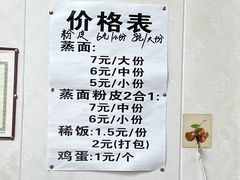 价格表
粉皮 6元/小份 8元/大份
蒸面:
7元/大份
6元/中份
5元/小份
蒸面粉皮2合1:
7元/中份
6元/小份
稀饭:1.5元/份
2元(打包)
鸡蛋:1元/个